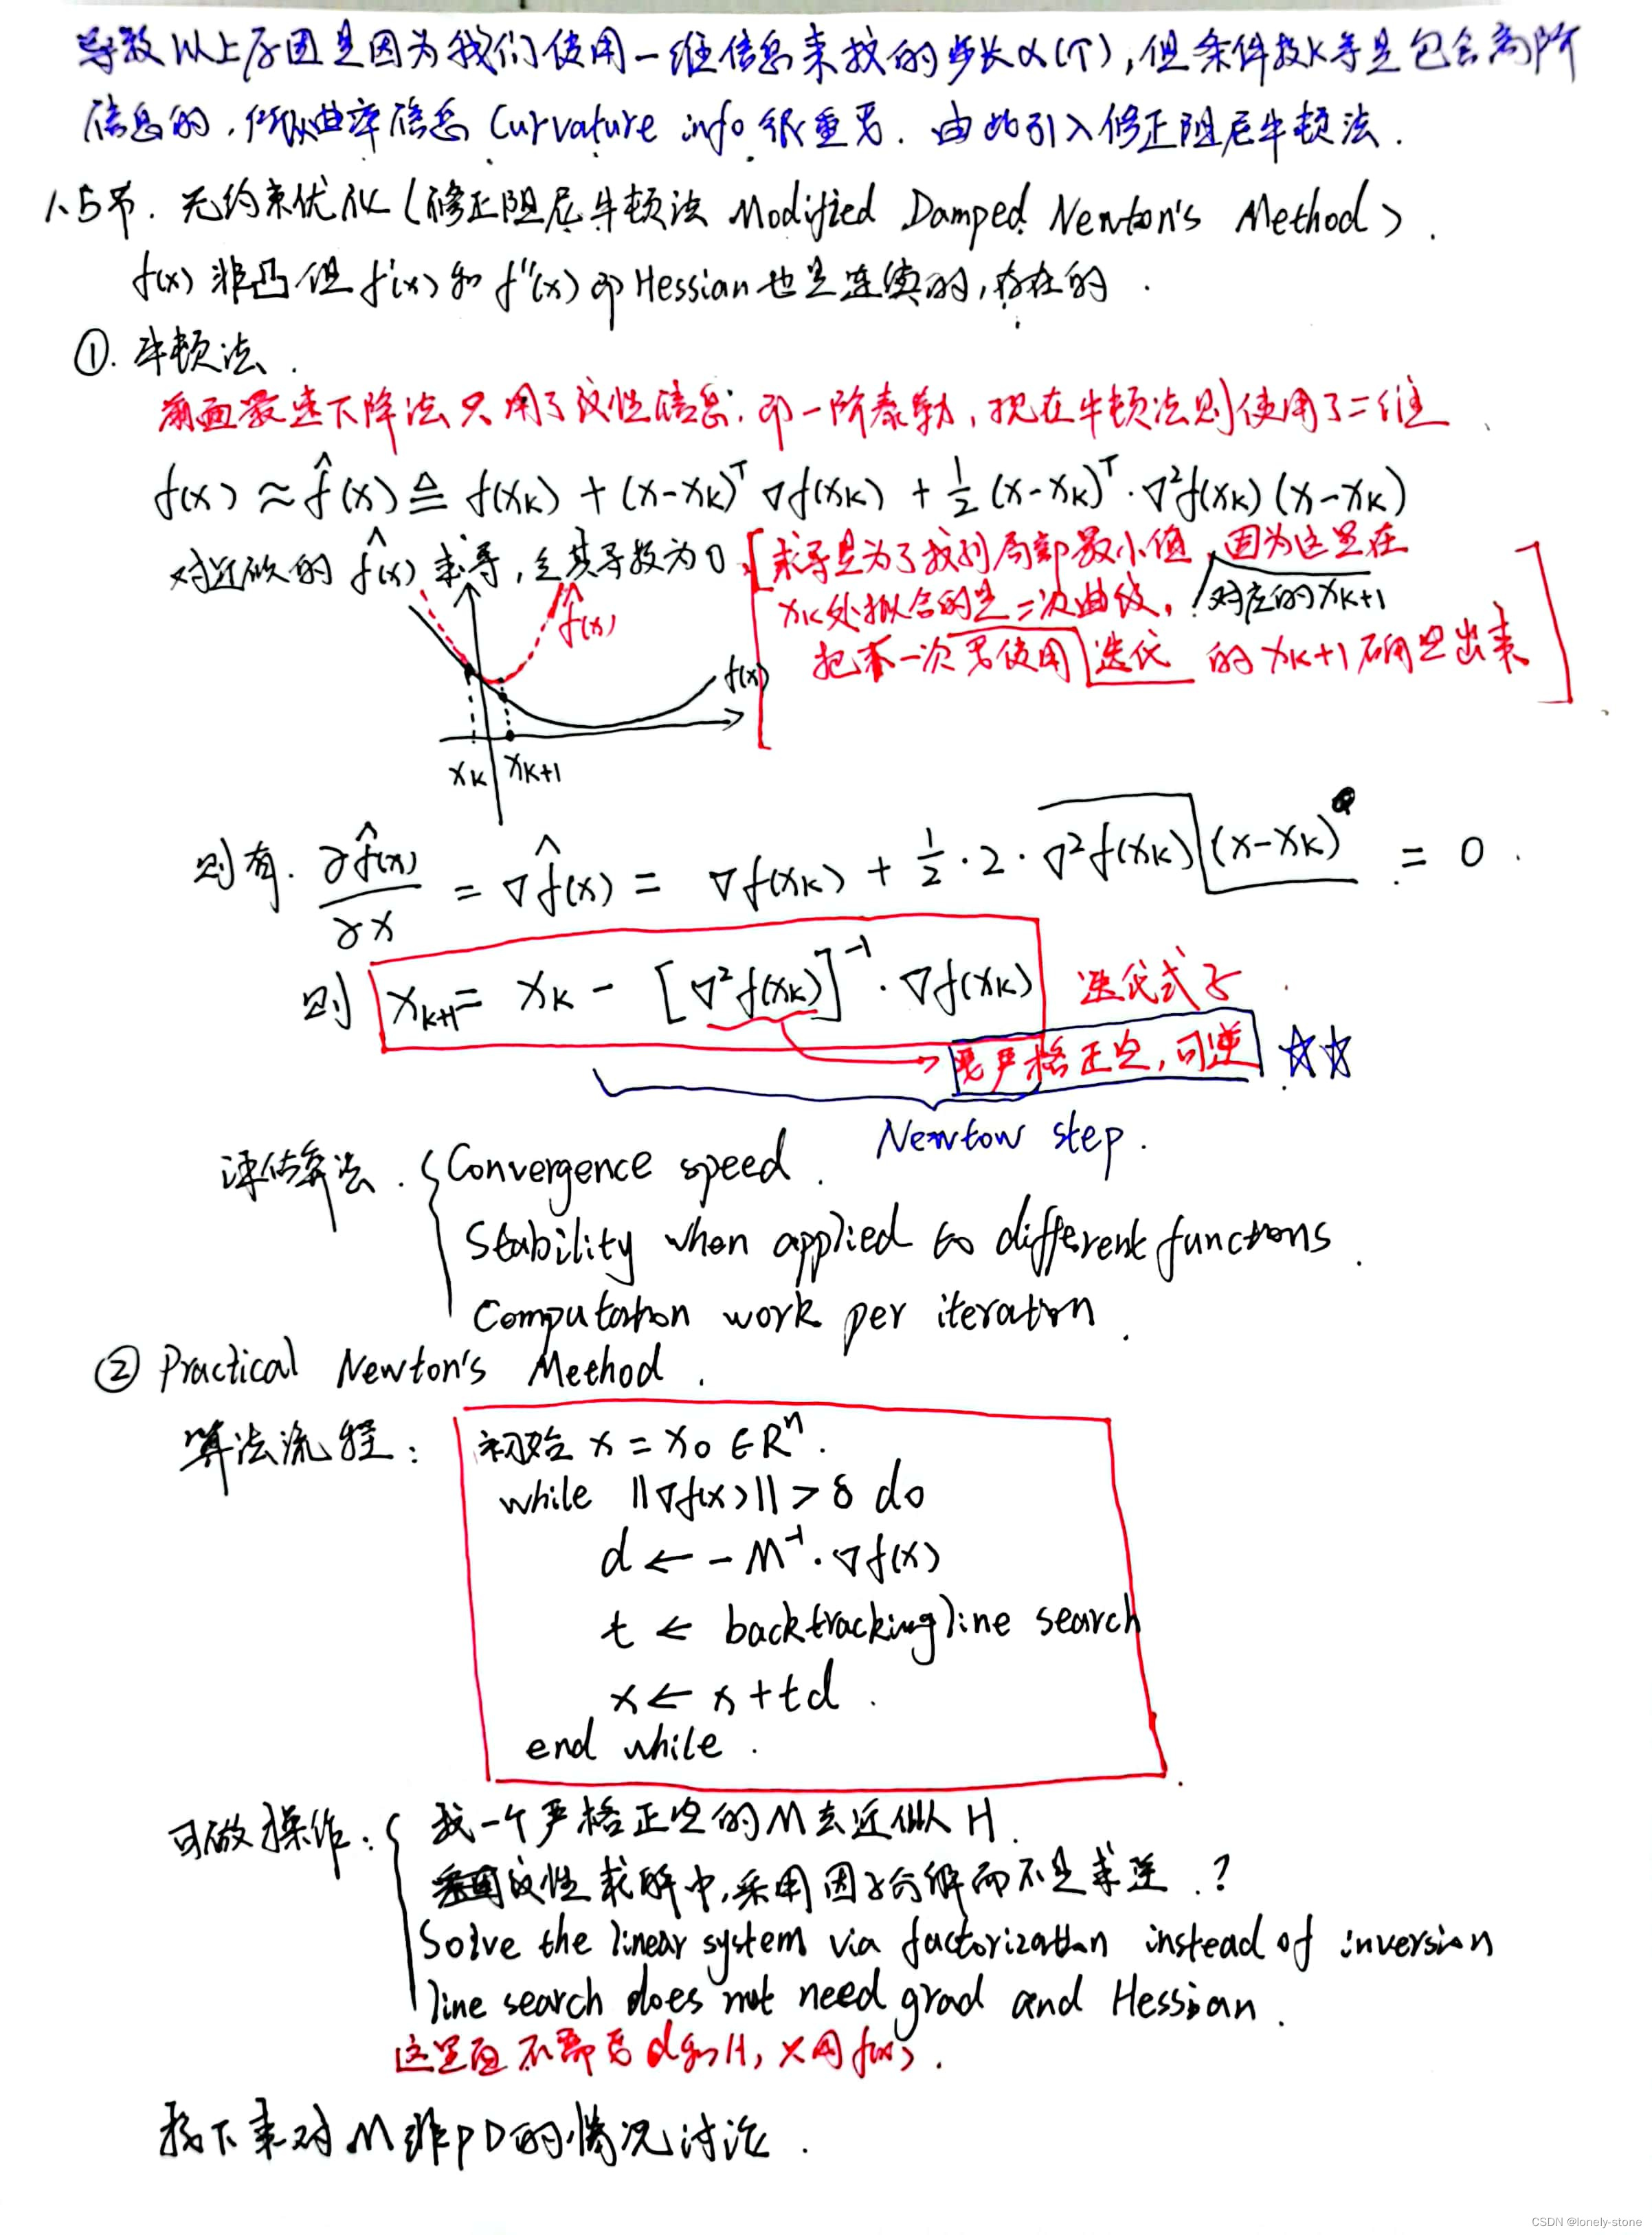 导致以上原因是因为我们使用一维信息来找的步长α(个),但条件数K等是包含高阶
信息的,所以曲率信息 Curvature info 很重要. 由此引入修正阻尼牛顿法.
1.5节. 无约束优化(修正阻尼牛顿法 Modified Damped Newton's Method).
f(x)非凸但f'(x)和f''(x)即Hessian也是连续的,存在的.
①. 牛顿法.
前面最速下降法只用了线性信息:即一阶泰勒,现在牛顿法则使用了二维
f(x)≈f̂(x)≜f(xK)+(x-xK)ᵀ∇f(xK)+½(x-xK)ᵀ·∇²f(xK)(x-xK)
对近似的f̂(x)求导,令其导数为0.
[求导是为了找到局部最小值,因为这里在
xK处拟合的是二次曲线,对应的xK+1
把下一次要使用迭代的xK+1确定出来]
f̂(x)
f(x)
xK xK+1
则有. ∂f̂(x)/∂x = ∇f̂(x) = ∇f(xK)+½·2·∇²f(xK)(x-xK) = 0.
则 xK+1 = xK - [∇²f(xK)]⁻¹·∇f(xK) 迭代式子
要严格正定,可逆 ☆☆
Newtow step.
评估算法. { Convergence speed.
Stability when applied to different functions.
Computation work per iteration.
② Practical Newton's Method.
算法流程: 初始 x = x0 ∈ Rⁿ.
while ||∇f(x)|| > δ do
d ← -M⁻¹·∇f(x)
t ← backtracking line search
x ← x+td.
end while.
可做操作: { 找一个严格正定的M去近似H.
线性求解中,采用因子分解而不是求逆.?
Solve the linear system via factorization instead of inversion
line search does not need grad and Hessian.
这里面不需要d和H,只用f(x).
接下来对M非PD的情况讨论.
CSDN @lonely-stone